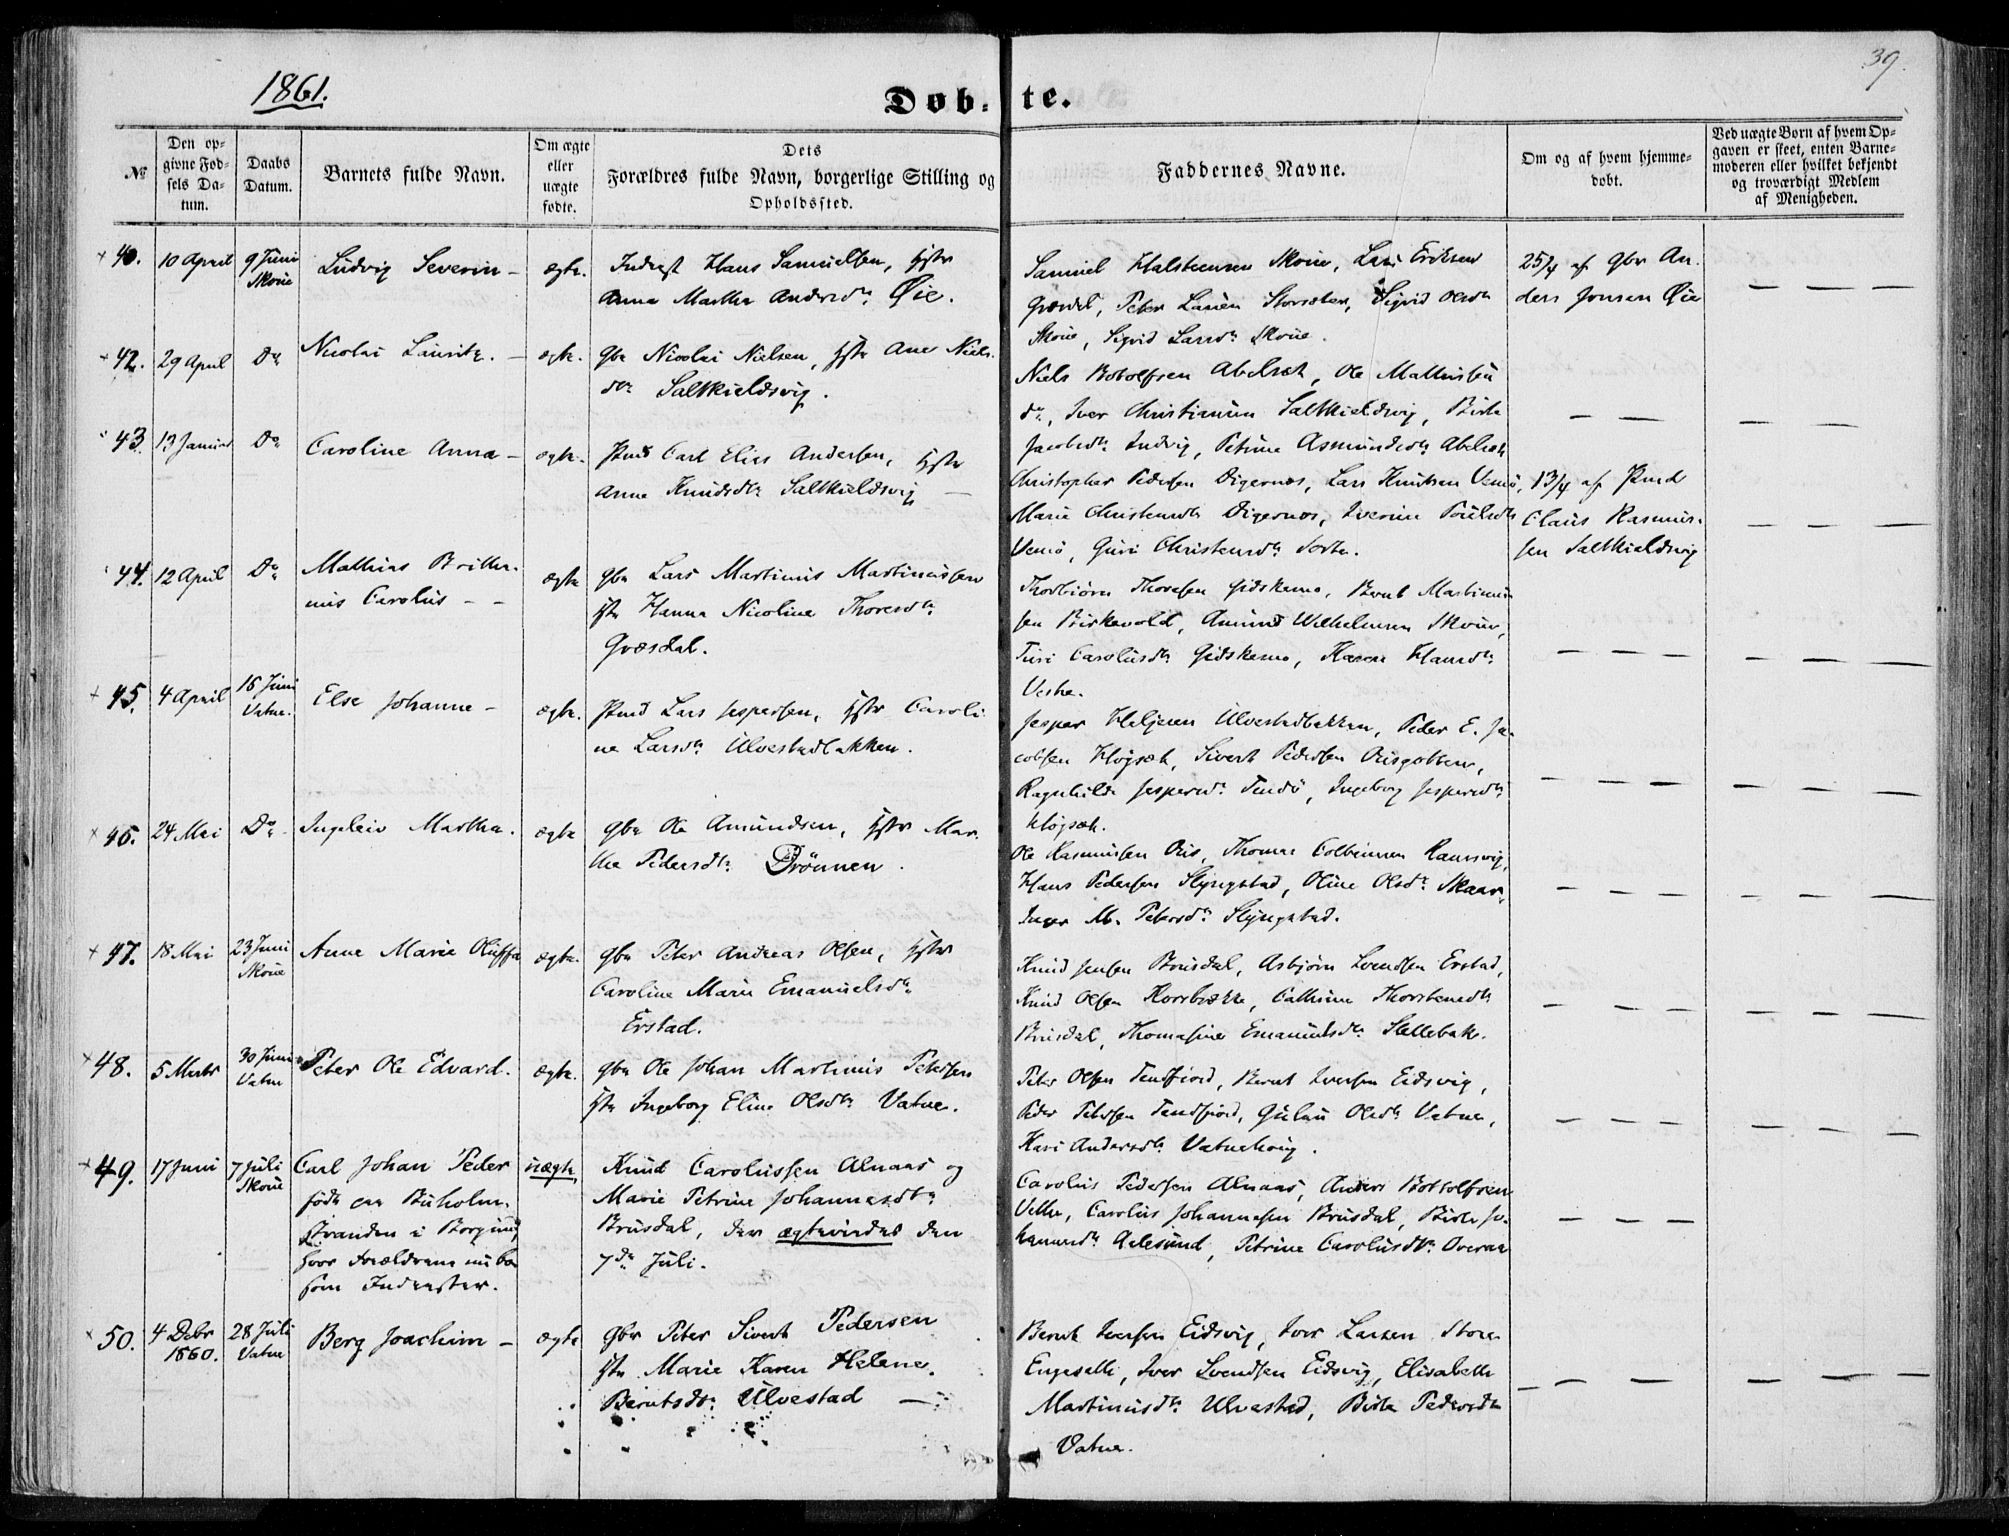 39.
1861.
Døb-te.
№
Den op-
givne Fød-
sels Da-
tum.
Daabs
Datum.
Barnets fulde Navn.
Om ægte
eller
uægte
fødte.
Dets
Forældres fulde Navn, borgerlige Stilling og
Opholdssted.
Faddernes Navne.
Om og af hvem hjemme-
døbt.
Ved uægte Børn af hvem Op-
gaven er skeet, enten Barne-
moderen eller hvilket bekjendt
og troværdigt Medlem
af Menigheden.
10 April
9 Juni
Skoue
Ludvig Severin -
ægte.
Inderst Hans Samuelsen,
Anna Martha Andersdtr Øie.
Samuel Halsteensen Skoue, Lars Eriksen
Peter Larsen Storsæter, Sigrid Olsdtr
Skoue, Sigrid Larsdtr Skoue.
25/4 af gbr An-
ders Jonsen Øie
42.
29 April
Do
Nicolai Lauritz. -
ægte.
gbr Nicolai Nielsen, Hstr Ane Niels-
dtr Saltkieldsvig.
Niels Botolfsen Abelsæt, Ole Mathiesen
do, Iver Christiansen Saltkieldsvig, Birte
Jacobsdtr Indvig, Petrine Asmundsdtr Abelsæt
43.
13 Januar
Do
Caroline Anna -
ægte.
Carl Elias Andersen, Hstr
Anne Knudsdtr Saltkieldsvig -
Christopher Pedersen Digernes, Lars Knutsen Vemø,
Marie Christensdtr Digernes, Iverine Poulsdtr
Vemø, Guri Christensdtr
13/4 af
Claus Rasmus-
sen Saltkieldsvig
44.
12 April
Do
Mathias
Carolus - -
ægte
gbr Lars Martinus Martinussen
Hstr Hanna Nicoline Thoresdtr
Græsdal.
Thorbiørn Thoresen Gidskemo, Bernt Martinus-
sen Birkevold, Amund Wilhelmsen Skoue,
Turi Carolusdtr Gidskemo, Karen Hansdtr
Vestre.
45.
4 April
Juni
Vatne.
Else Johanne -
ægte.
Lars Jespersen, Hstr Caroli-
ne Larsdtr Ulvestadbakken.
Jesper Heljesen Ulvestadbakken, Peder E. Ja-
cobsen Høgsæt, Sivert Pedersen
Ragnhilde Jespersdtr Tendø, Ingeborg Jespersdtr
Høgsæt.
46.
24 Mai
Do
Ingeleiv Martha.
ægte
gbr Ole Amundsen, Hstr Mar-
the Pedersdtr Drønnen.
Ole Rasmussen Thomas Colbeinsen Ramsvig,
Hans Pedersen Slyngstad, Oline Olsdtr Skaar
Inger M. Petersdtr Slyngstad.
47.
18 Mai
23 Juni
Skoue
Anne Marie Oluffa
ægte.
gbr Peter Andreas Olsen, Hstr
Caroline Marie Emanuelsdtr
Erstad.
Knud Jensen Brusdal, Asbjørn Svendsen Erstad,
Knud Olsen Korsbrække, Cathrine Thorstensdtr
Brusdal, Thomasine Emanuelsdtr Slettebak.
48.
5 Marts
30 Juni
Vatne
Peter Ole Edvard.
ægte.
gbr Ole Johan Martinus Petersen
Hstr Ingeborg Eline Olsdtr Vatne.
Peter Olsen Tendfjord, Bernt Iversen Eidsvig,
Peder Petersen Tendfjord, Gulau Olsdtr Vatne,
Kari Andersdtr Vatnehoug.
49.
17 Juni
7 Juli
Skoue
Carl Johan Peder
født paa Buholm-
stranden i Borgund
hvor Forældrene nu bo
som Inderster.
uægte
Knud Carolussen Alnaas og
Marie Petrine Johannesdtr
Brusdal, der ægtevidtes den
7de Juli.
Carolus Pedersen Alnaas, Anders Botolfsen
Carolus Johannesen Brusdal, Birte Jo-
hannesdtr Aalesund, Petrine Carolusdtr Overaa
50.
4 Debr
1860.
28 Juli
Vatne
Berg Joachim -
ægte
gbr Peter Sivert Pedersen
Hstr Marie Karen Helene
Berntsdtr Ulvestad -
Bernt Iversen Eidsvig, Iver Larsen Store
Engesætte, Iver Svendsen Eidsvig, Elisabeth
Martinusdtr Ulvestad, Birte Pedersdtr
Vatne.